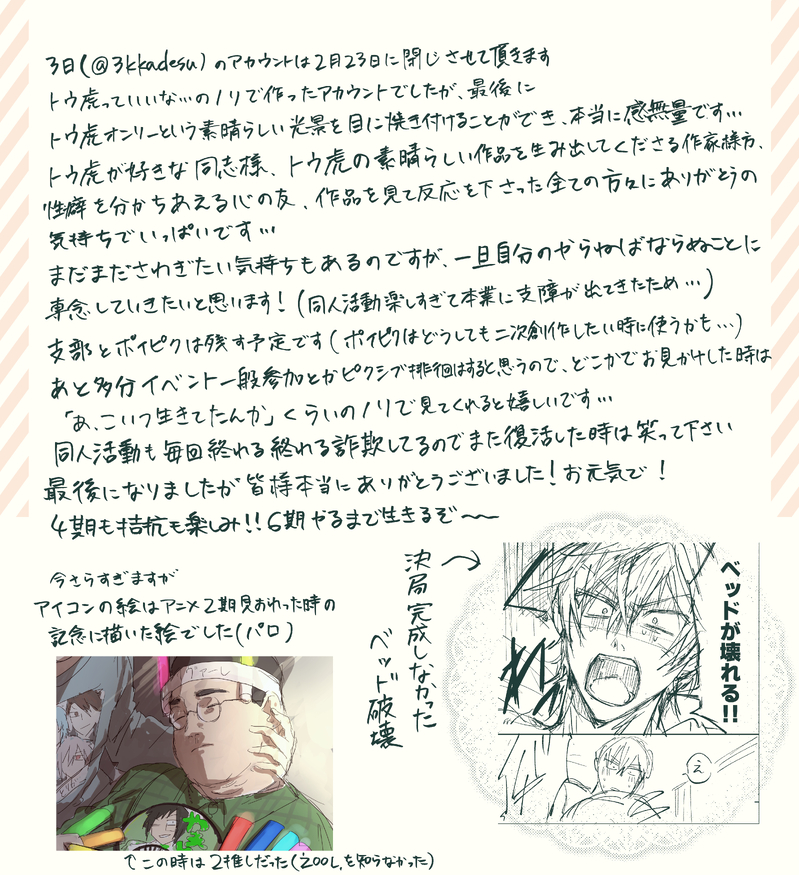 3日(@3kkadesu)のアカウントは2月23日に閉じさせて頂きます
トウ虎っていいな…のノリで作ったアカウントでしたが、最後に
トウ虎オンリーという素晴らしい光景を目に焼き付けることができ、本当に感無量です…
トウ虎が好きな同志様、トウ虎の素晴らしい作品を生み出してくださる作家様方、
性癖を分かちあえる心の友、作品を見て反応を下さった全ての方々にありがとうの
気持ちでいっぱいです…
まだまださわぎたい気持ちもあるのですが、一旦自分のやらねばならぬことに
専念していきたいと思います!(同人活動楽しすぎて本業に支障が出てきたため…)
支部とポイピクは残す予定です(ポイピクはどうしても二次創作したい時に使うかも…)
あと多分イベント一般参加とかピクシブ徘徊はすると思うので、どこかでお見かけした時は
「あ、こいつ生きてたんか」くらいのノリで見てくれると嬉しいです…
同人活動も毎回終わる終わる詐欺してるのでまた復活した時は笑って下さい
最後になりましたが皆様本当にありがとうございました!お元気で!
4期も拮抗も楽しみ!!6期やるまで生きるぞ〜〜
今さらすぎますが
アイコンの絵はアニメ2期見おわった時の
記念に描いた絵でした(パロ)
ヴァーし
↑この時は2推しだった(ŹOOĻを知らなかった)
決局完成しなかった
ベッド破壊
ベッドが壊れる!!
え